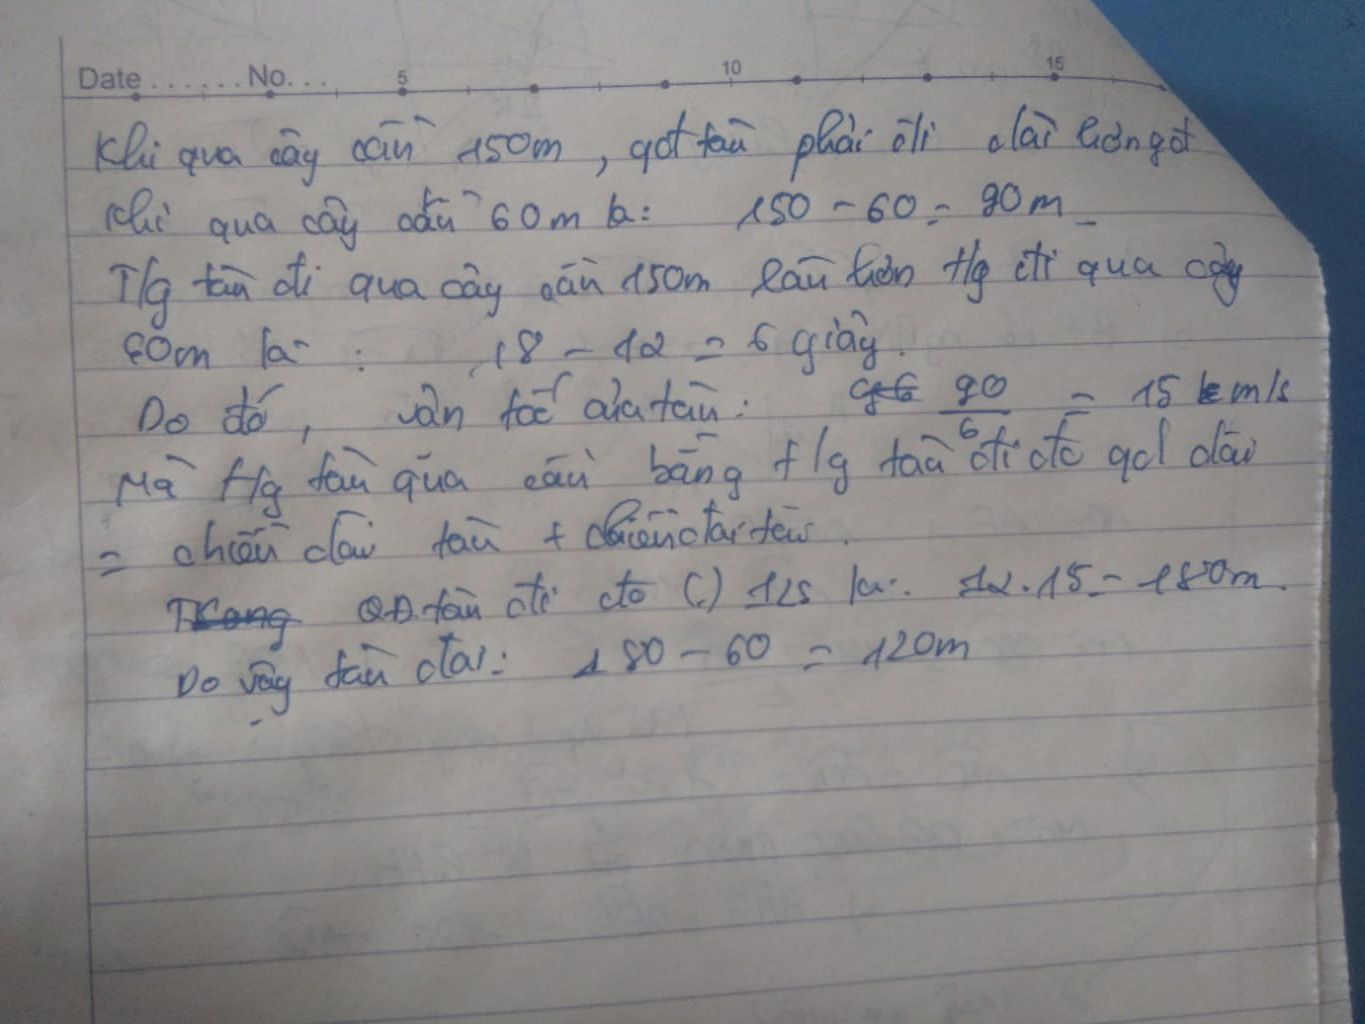 Date ...... No. ... 5 10 15
Khi qua cây cầu 150m, qđ tàu phải đi dài hơn qđ
khi qua cây cầu 60m là: 150 - 60 = 90m
T/g tàu đi qua cây cầu 150m lâu hơn t/g đi qua cây
60m là: 18 - 12 = 6 giây.
Do đó, vận tốc của tàu: 90/6 = 15 m/s
Mà t/g tàu qua cầu bằng t/g tàu đi đc qđ dài
= chiều dài tàu + chiều dài tàu.
QĐ tàu đi đc (.) 12s là: 12.15 = 180m.
Do vậy tàu dài: 180 - 60 = 120m